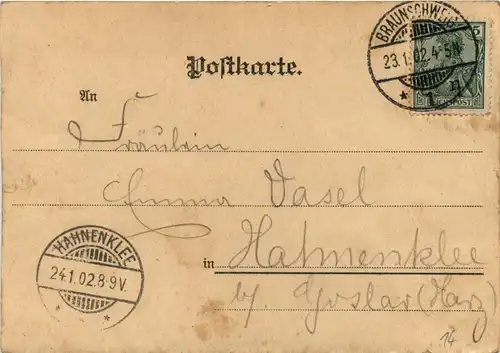 BRAUNSCHWEIG
23.1.02.4-5N.
* 1 n.
5
REICHSPOST
Postkarte.
An
Fräulein
Emma Vasel
HAHNENKLEE
24.1.02.8-9V.
* *
in Hahnenklee
b/ Goslar (Harz)
14